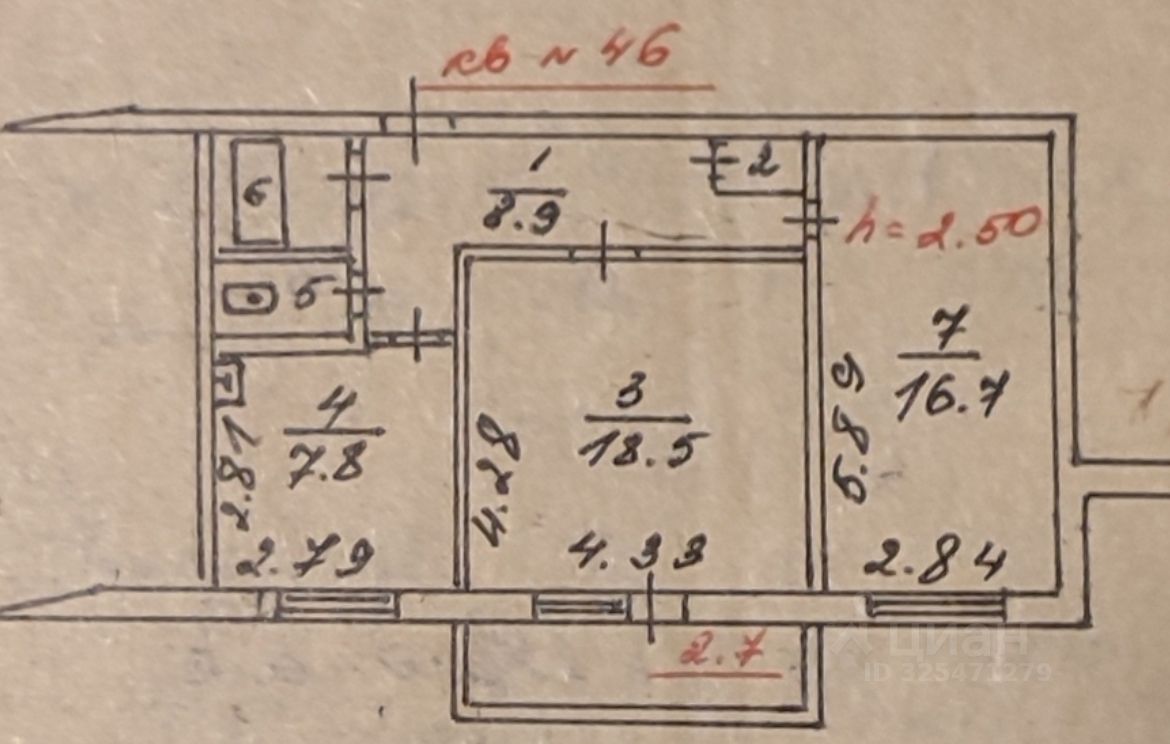 кв № 46
1
8.9
2
6
h = 2.50
5
7
16.7
5.89
3
18.5
4
7.8
2.81
4.28
2.79
4.33
2.84
2.7
Циан
ID 325471279